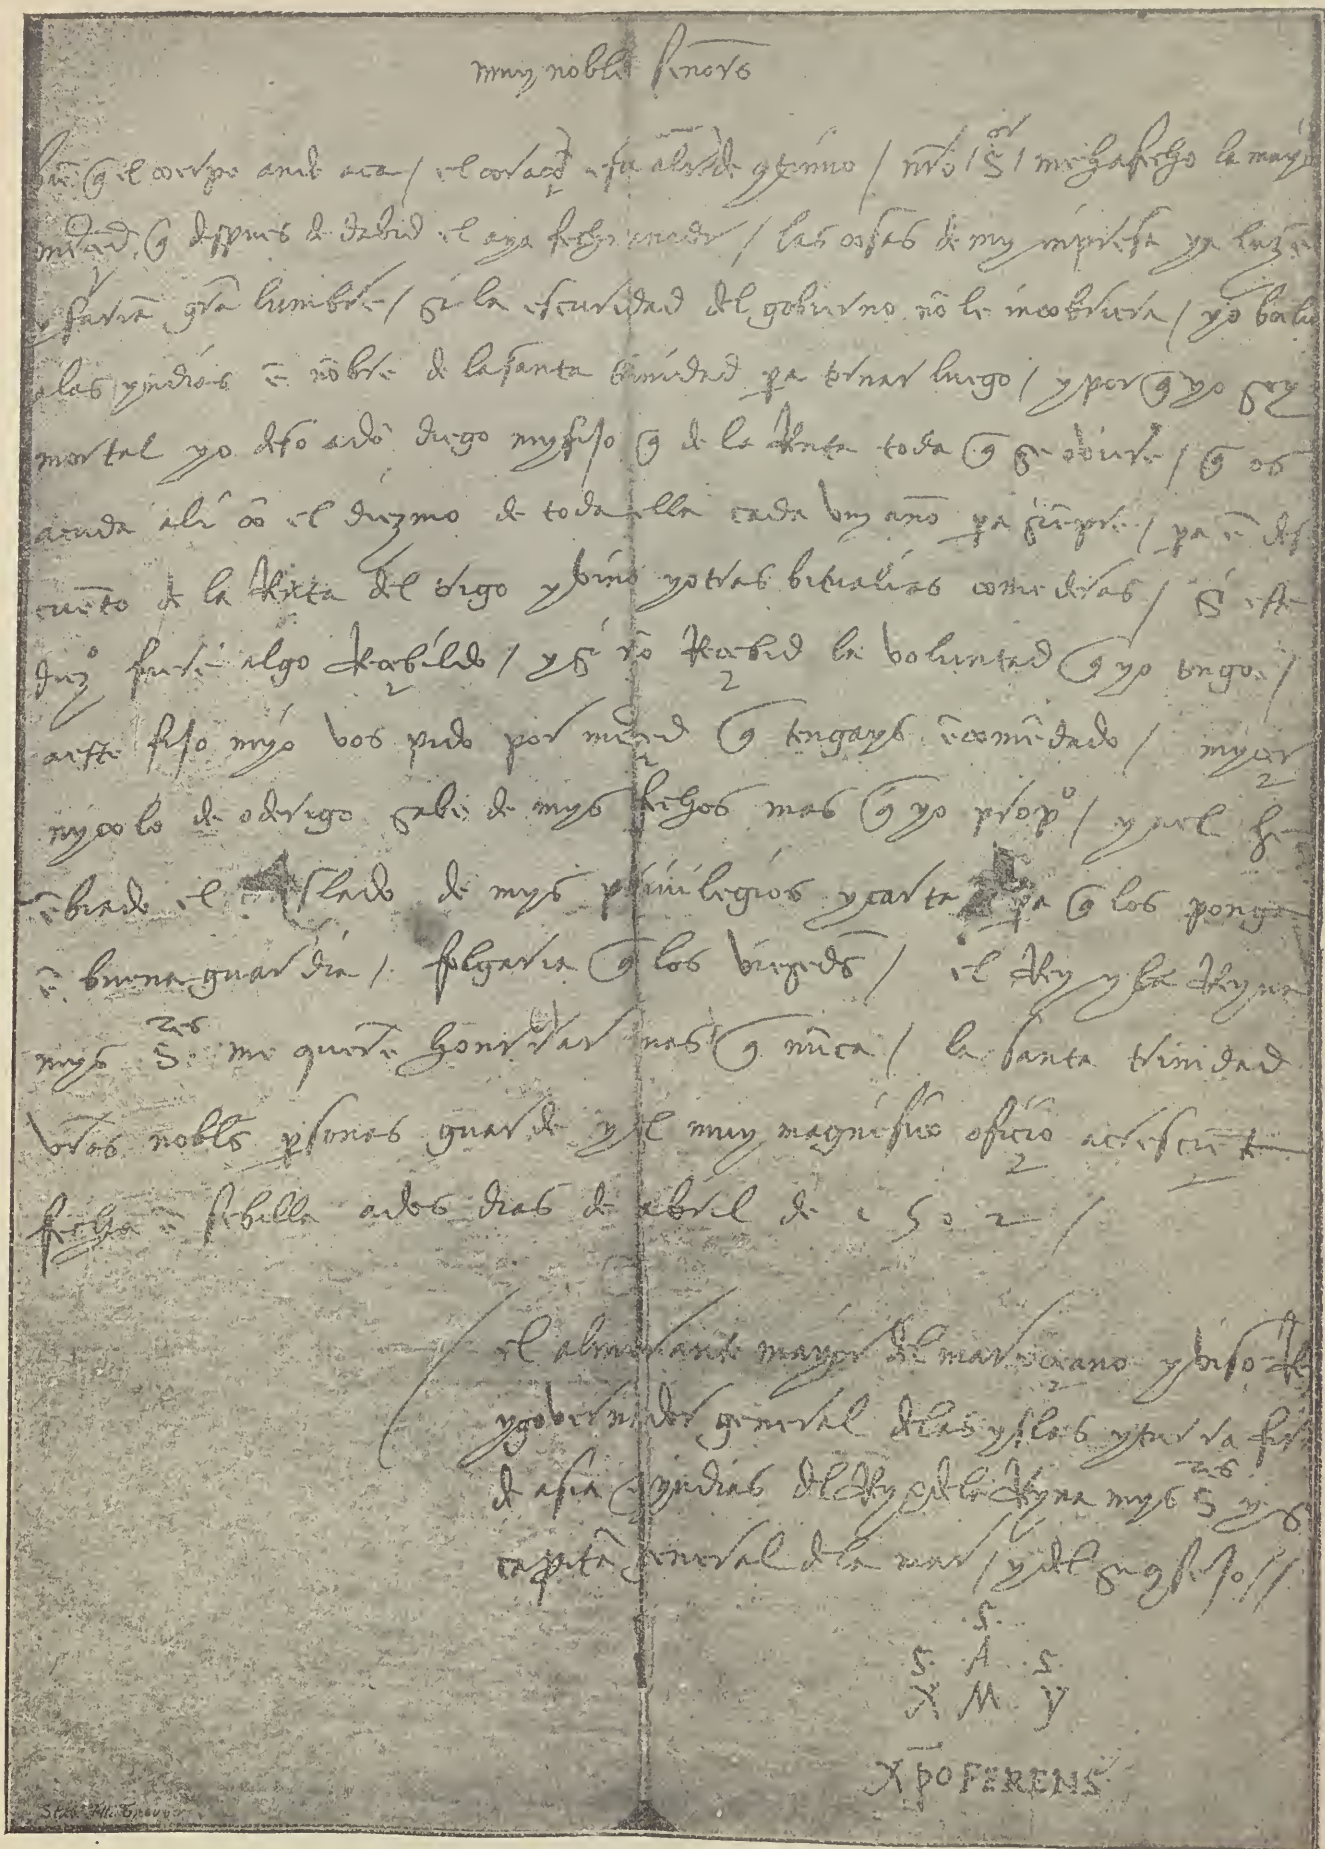 muy nobles señors
biē q̃ el coerpo ande aca / el coraçō esta ali de q̄tinuo / nr̄o / Sor / me ha fecho la mayor
merced q̃ despues de dabid el aya fecho a nadi / las cosas de my inpresa ya luzē
y fariā grā lumbre / si la escuridad del gobierno nō le incobriera / yo boelu
a las yndias ē nōbre de la santa trinidad pa tornar luego / y por q̃ yo soy
mortal yo deso a dō diego my fijo q̃ de la Renta toda q̃ se obiere / q̃ os
acuda ali cō el diezmo de toda ella cada un año pa siēpre / pa ē des
cuēto de la Renta del trigo y bino y otras bitualias comederas / si este
diezo fuere algo Recebildo / y si nō Recebid la voluntad q̃ yo tengo /
a este fijo myo vos pido por merced q̃ tengays ēcomēdado / mycer
nycolo de oderigo sabe de mys fechos mas q̃ yo propo / y a el he
ēbiado el traslado de mys priuilegios y carta pa q̃ los ponga
ē buena guardia / folgaria q̃ los vieseds / el Rey y la Reyna
mys Sres me quierē honrrar mas q̃ nūca / la santa trinidad
vr̄as nobles psonas guarde y el muy magnifico oficio acresciente
fecha ē sebilla a dos dias de abril de 1502 /
el almirante mayor del mar oceano y viso Re
y governador general de las yslas y tierra fir
de asia e yndias del Rey e de la Reyna mys Sres y s
capitā general de la mar / y del su q̄sejo //
.S.
.S. A .S.
X M Y
Xp̄o FERENS